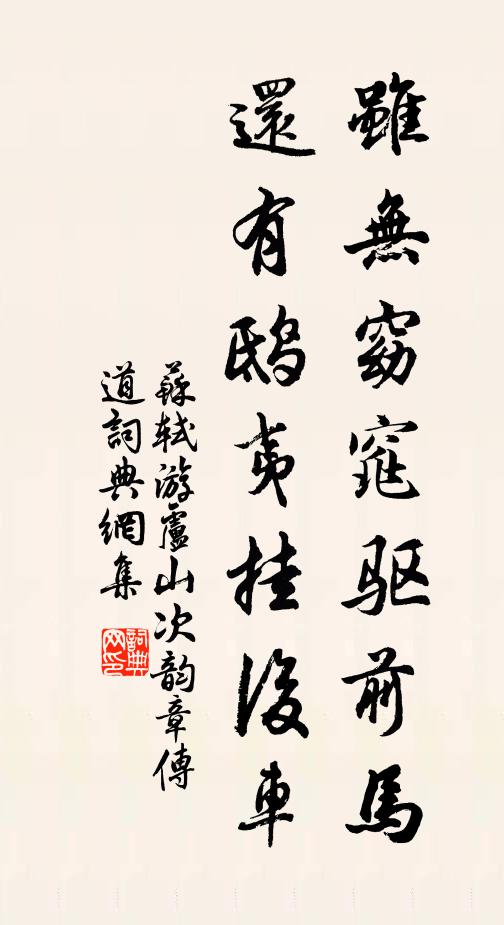 雖無窈窕驱前馬
還有鴟夷挂後車
蘇軾游廬山次韵章傳
道詞典網集
詞典网印